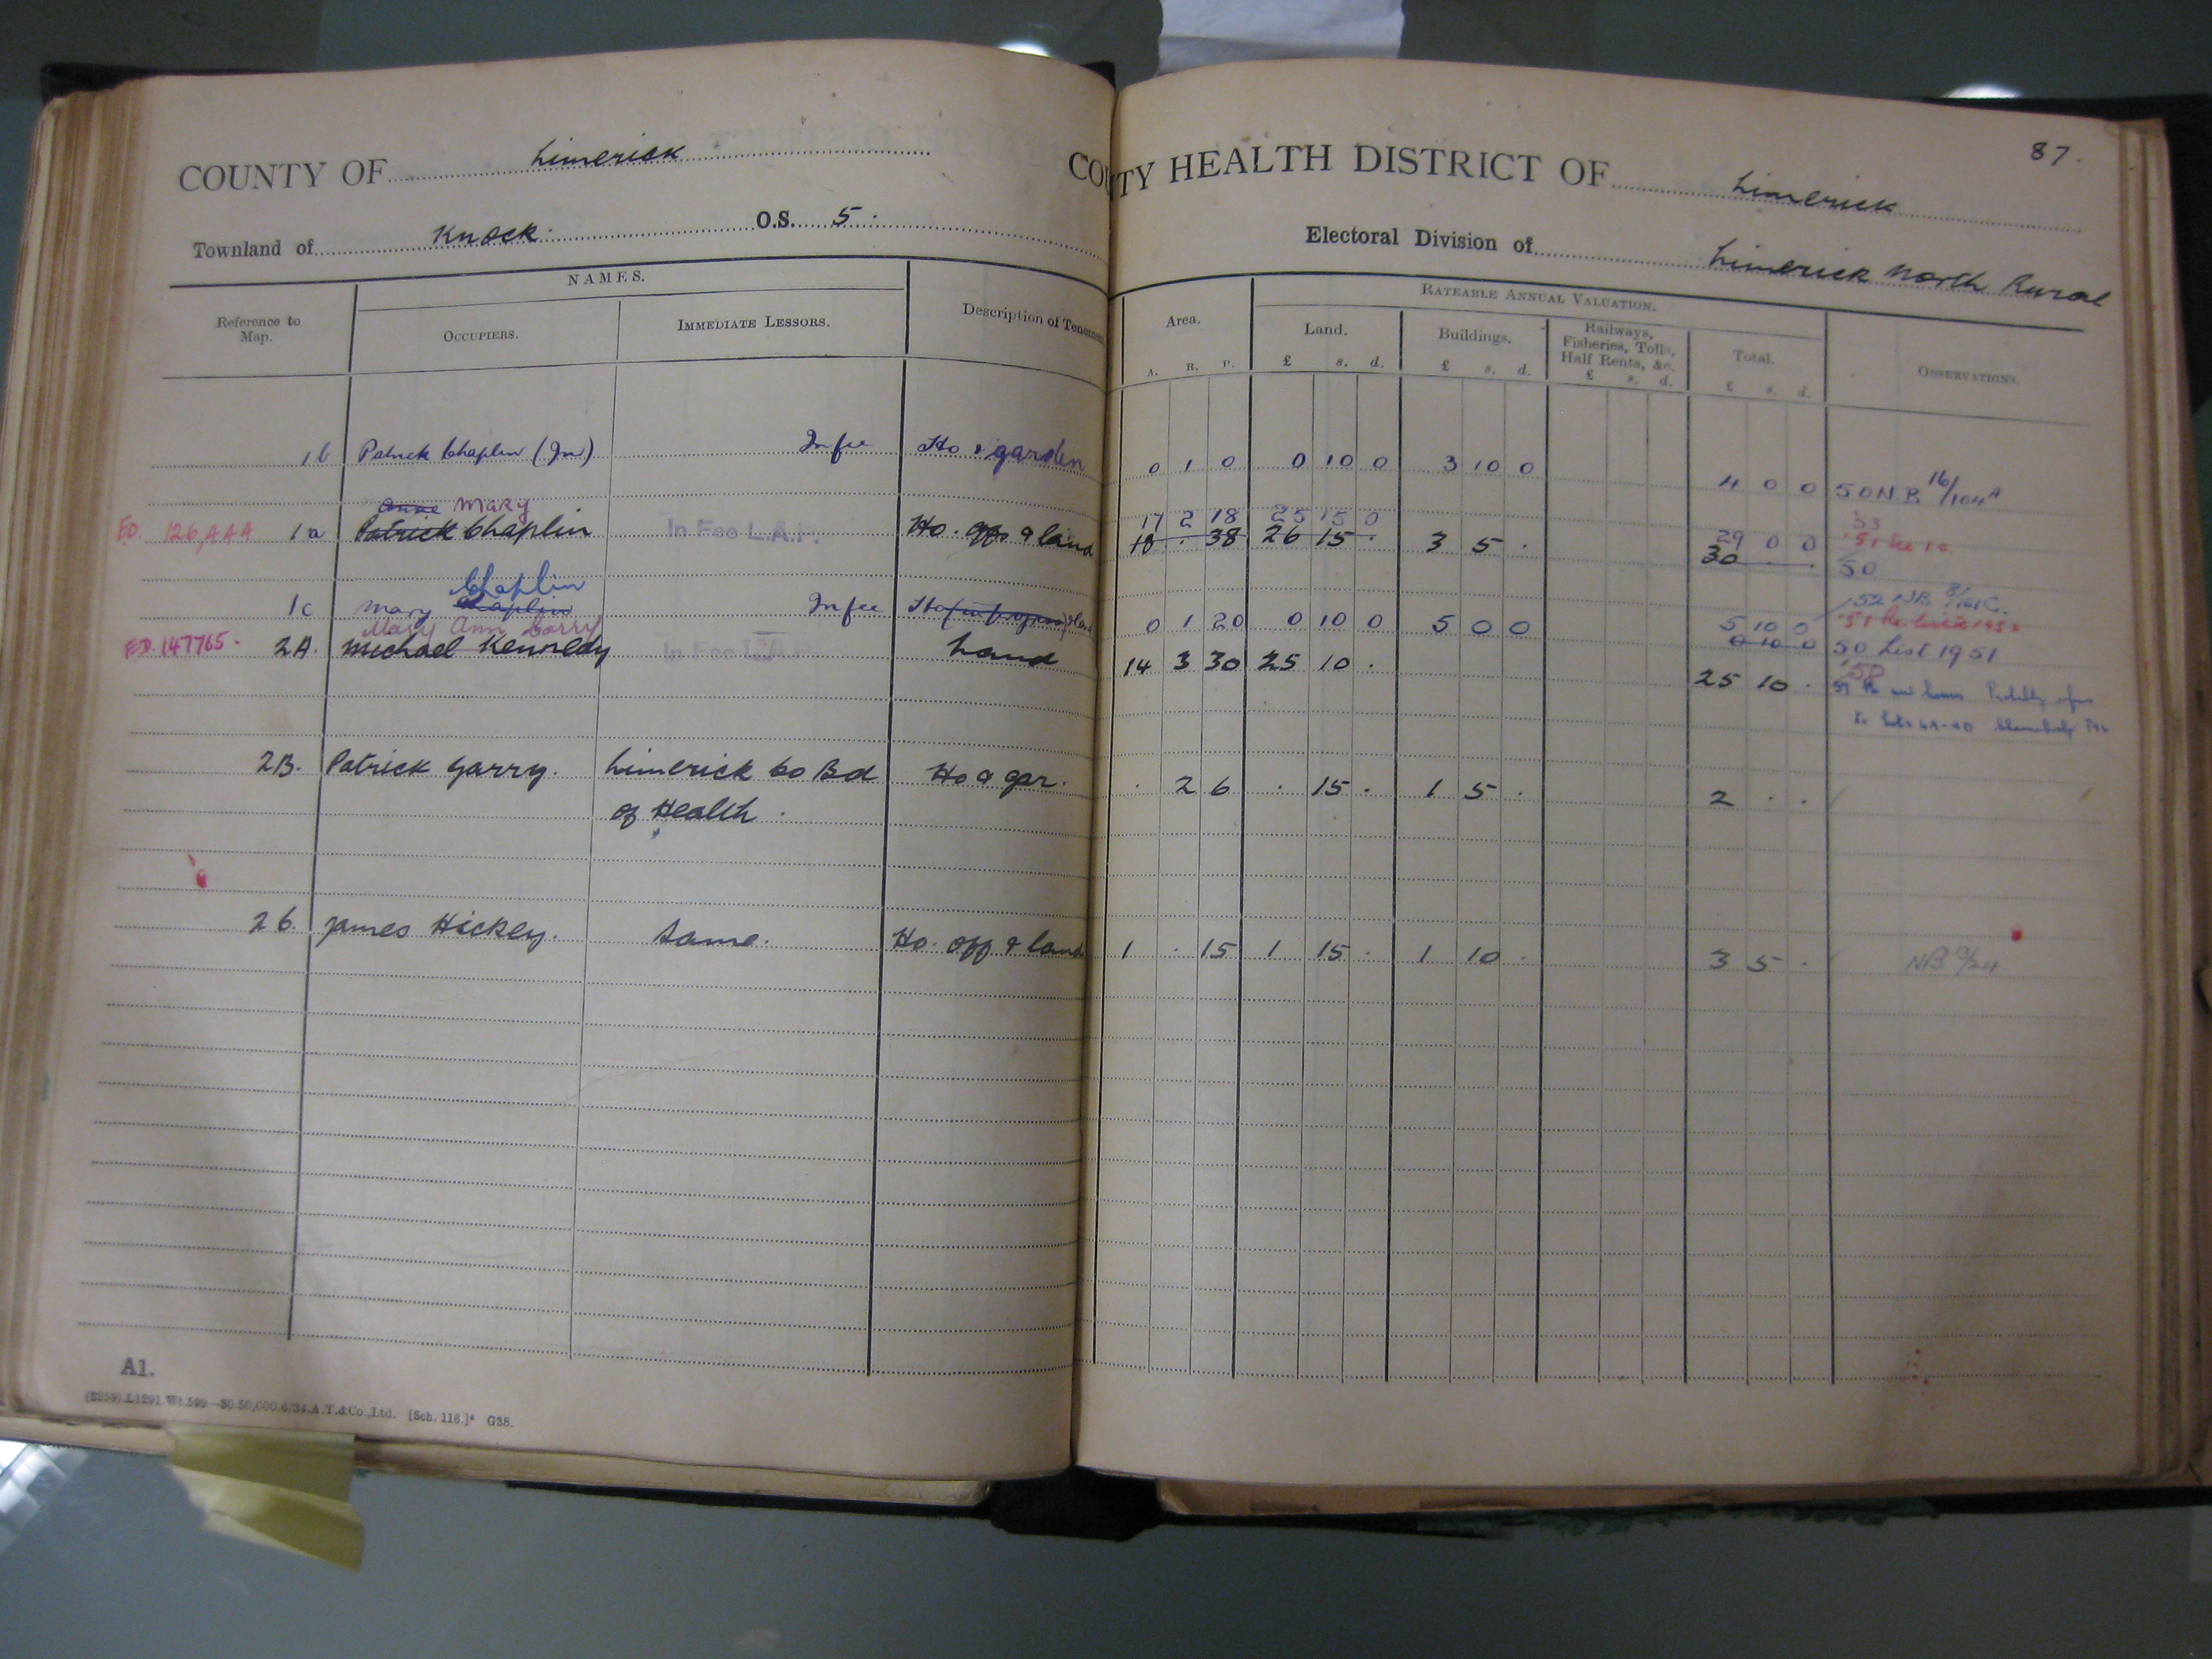 87.
COUNTY OF Limerick
COUNTY HEALTH DISTRICT OF Limerick
Townland of Knock. O.S. 5.
Electoral Division of Limerick North Rural
Reference to Map. NAMES. OCCUPIERS. IMMEDIATE LESSORS. Description of Tenement
Area. A. R. P. RATEABLE ANNUAL VALUATION. Land. £ s. d. Buildings. £ s. d. Railways, Fisheries, Tolls, Half Rents, &c. £ s. d. Total. £ s. d. OBSERVATIONS.
1b Patrick Chaplin (Jnr) In fee Ho & garden 0 1 0 0 10 0 3 10 0 4 0 0 50 N.B. 16/104A
Anne Mary 17 2 18 25 15 0 29 0 0 53
ED. 126,444 1a Patrick Chaplin In Fee L.A.P. Ho. offs & land 18 . 38 26 15 . 3 5 . 30 . . '51 See 1c
50
Chaplin
1c Mary Chaplin In fee Ho & land 0 1 20 0 10 0 5 0 0 5 10 0 '52 NB
0 10 0 50 List 1951
Mary Ann Garry
ED. 147765. 2A. Michael Kennedy In Fee Land 14 3 30 25 10 . 25 10 . '58
2B. Patrick Garry. Limerick Co Bd of Health. Ho & gar. . 2 6 . 15 . 1 5 . 2 . .
2C. James Hickey. Same. Ho. off & land 1 . 15 1 15 . 1 10 . 3 5 . NB
A1.
(3259).L1291.Wt.599—30.50,000.6/34.A.T.&Co.,Ltd. [Sch. 116.]* G38.